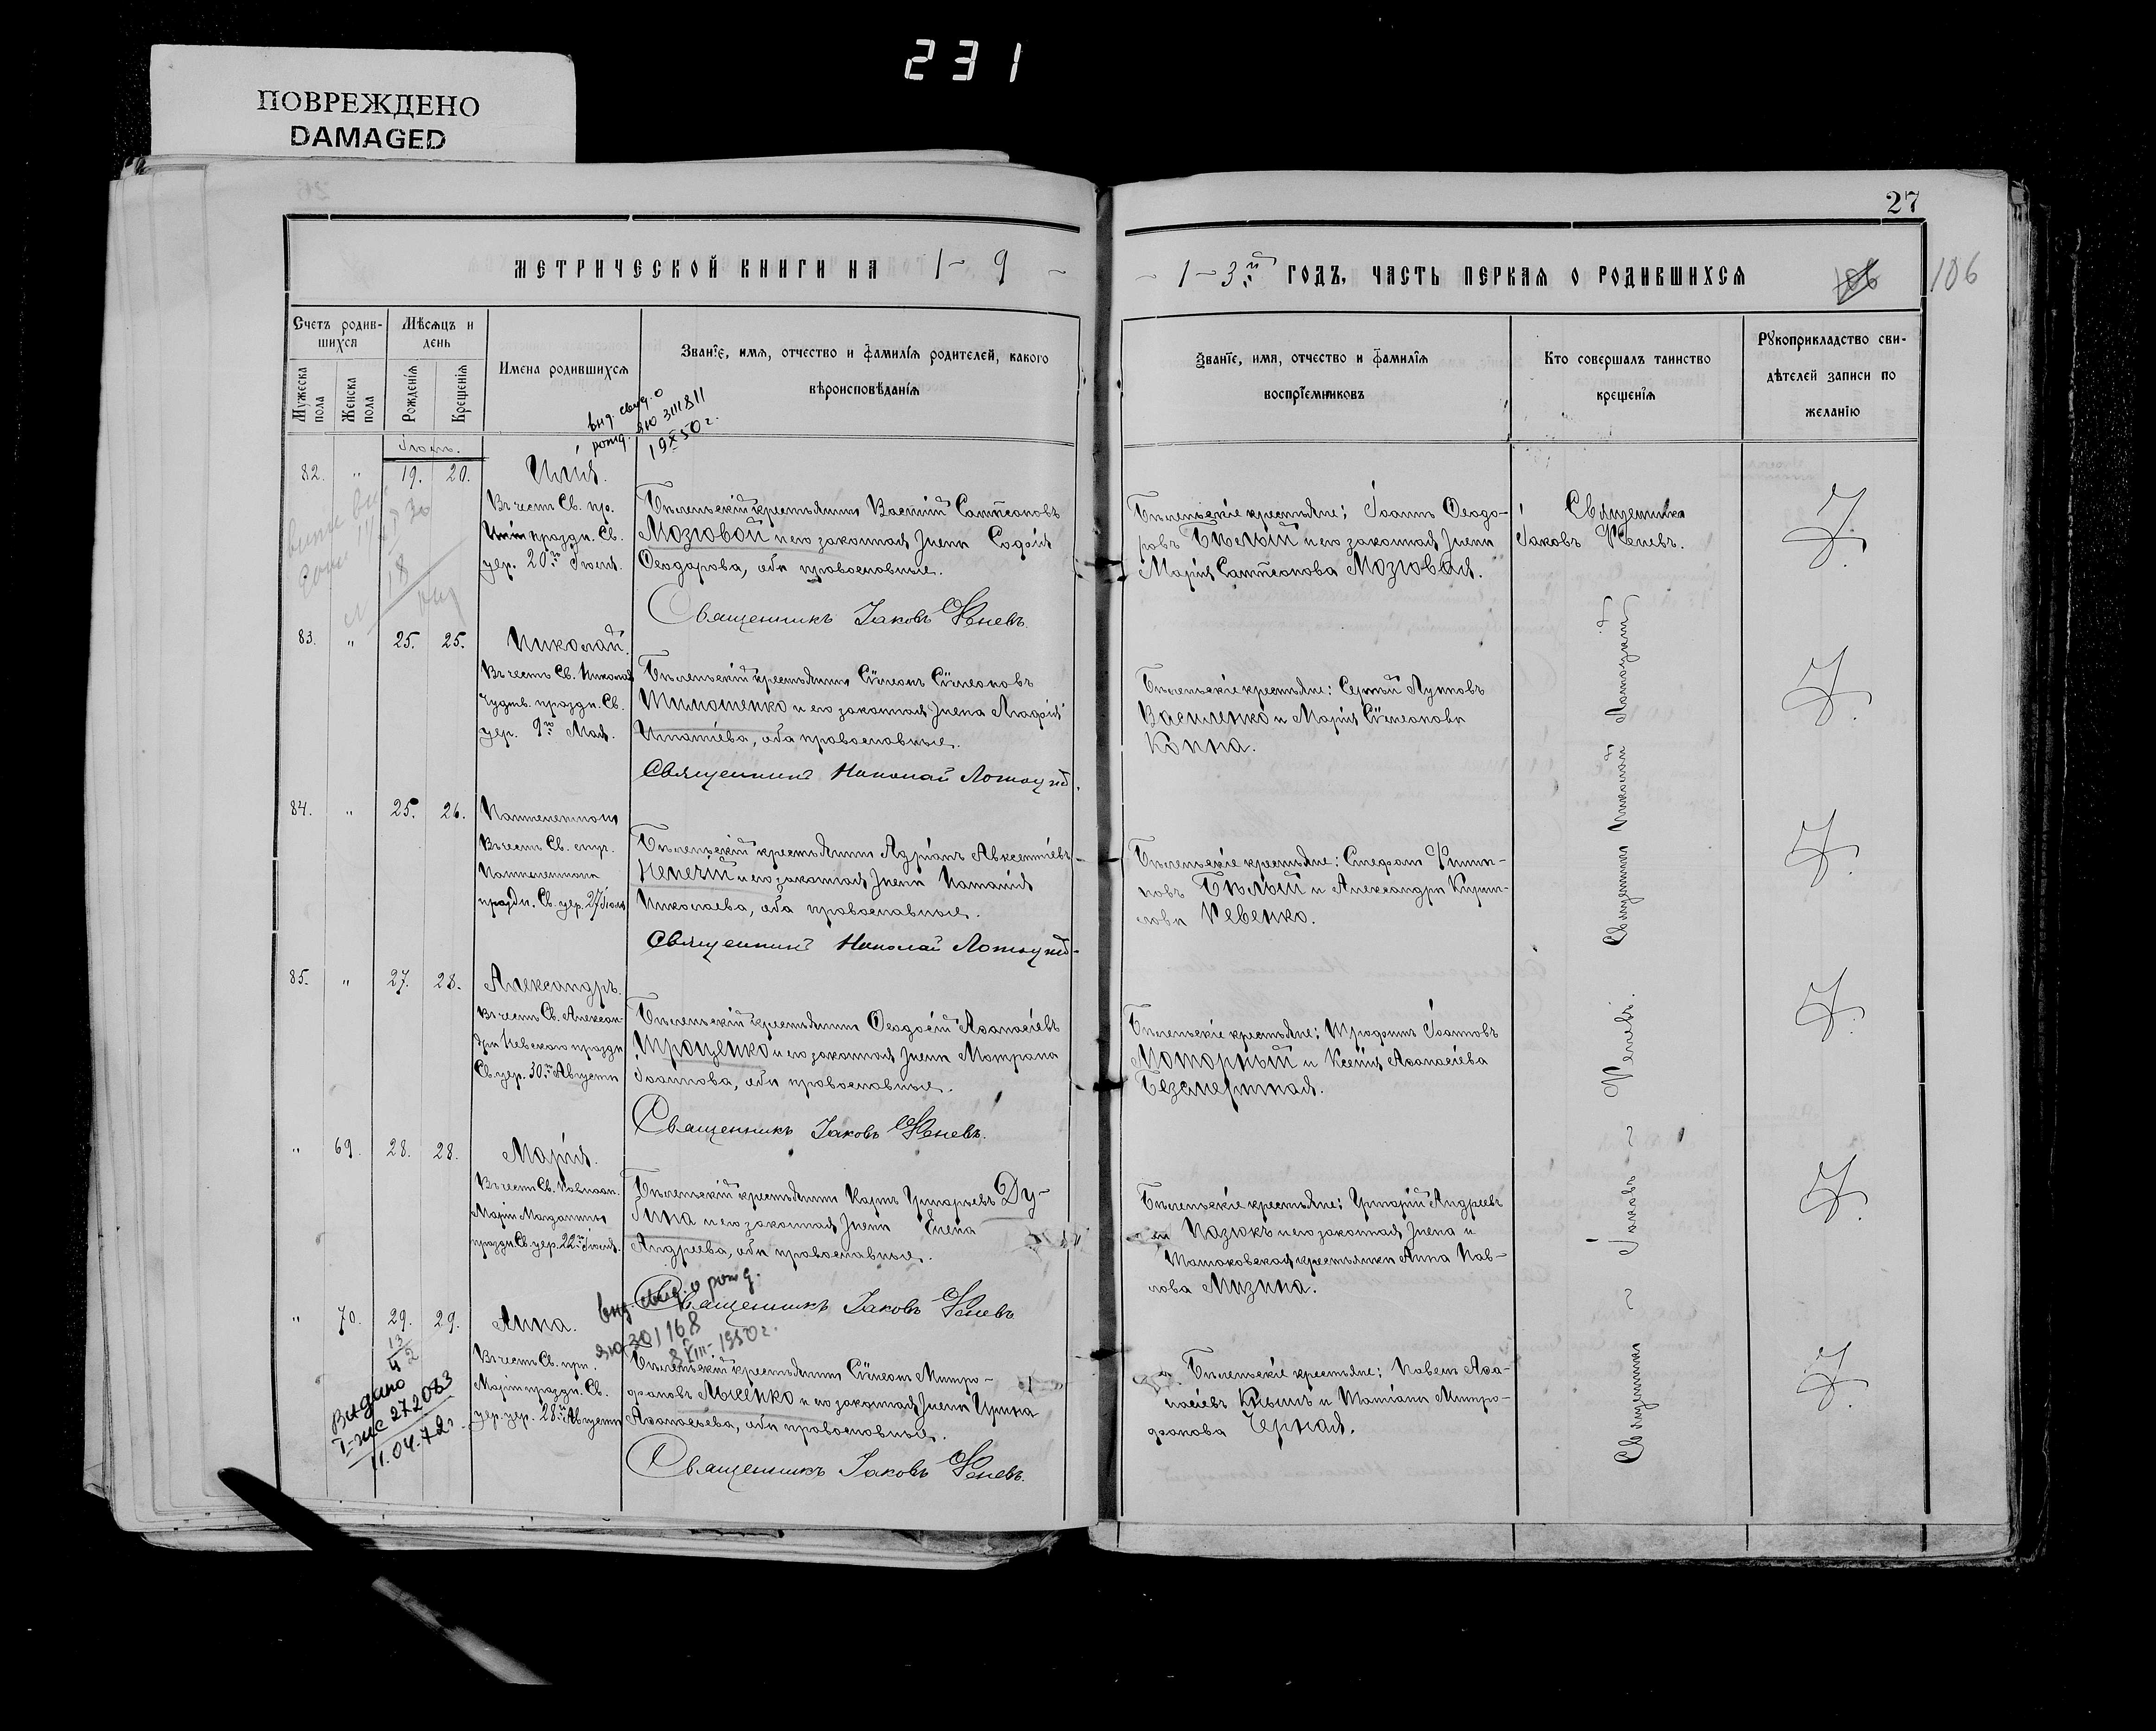 231
ПОВРЕЖДЕНО
DAMAGED
27
МЕТРИЧЕСКОЙ КНИГИ НА 1 - 9 -
- 1 - 3й ГОДЪ, ЧАСТЬ ПЕРВАЯ О РОДИВШИХСЯ
106
106
Счетъ родив-
шихся
Мужеска пола
Женска пола
Мѣсяцъ и
день
Рожденія
Крещенія
Имена родившихся
Званіе, имя, отчество и фамилія родителей, какого
вѣроисповѣданія
Званіе, имя, отчество и фамилія
воспріемниковъ
Кто совершалъ таинство
крещенія
Рукоприкладство сви-
дѣтелей записи по
желанію
выд. свид. о
рожд. ЯЮ 311811
19 X 50 г.
Іюль.
82. " 19. 20. Илія.
Въ честь Св. пр.
Иліи праздн. Св.
цер. 20го Іюля.
Бѣленьскій крестьянинъ Василій Сампсоновъ
Мозговой и его законная жена Софія
Ѳеодорова, оба православные.
Священникъ Іаковъ Женевъ.
Бѣленьскіе крестьяне: Іоаннъ Ѳеодо-
ровъ Бѣлый и его законная жена
Марія Сампсонова Мозговая.
Священникъ
Іаковъ Женевъ.
83. " 25. 25. Николай.
Въ честь Св. Николая
Чудтв. праздн. Св.
цер. 9го Мая.
Бѣленьскій крестьянинъ Сѵмеонъ Сѵмеоновъ
Тимошенко и его законная жена Агафія
Игнатіева, оба православные.
Священникъ Николай Лотоцкій.
Бѣленьскіе крестьяне: Сергій Лупповъ
Василенко и Марія Сѵмеонова
Коппа.
Священникъ Николай Лотоцкій
84. " 25. 26. Пантелеимонъ
Въ честь Св. влмч.
Пантелеимона
праздн. Св. цер. 27 Іюля
Бѣленьскій крестьянинъ Адріанъ Авксентіевъ
Пелечій и его законная жена Наталія
Николаева, оба православные.
Священникъ Николай Лотоцкій
Бѣленьскіе крестьяне: Стефанъ Филип-
повъ Бѣлый и Александра Кирил-
лова Ревенко.
85. " 27. 28. Александръ.
Въ честь Св. Алексан-
дра Невскаго праздн
Св. цер. 30го Августа
Бѣленьскій крестьянинъ Ѳеодосій Аѳанасіевъ
Троценко и его законная жена Матрона
Іоаннова, оба православные.
Священникъ Іаковъ Женевъ.
Бѣленьскіе крестьяне: Трофимъ Іоанновъ
Моторный и Ксенія Аѳанасіева
Безсмертная.
" 69. 28. 28. Марія.
Въ честь Св. равноап.
Маріи Магдалины
праздн. Св. цер. 22го Іюля.
Бѣленьскій крестьянинъ Карпъ Григорьевъ Ду-
бина и его законная жена Елена
Андреева, оба православные.
Священникъ Іаковъ Женевъ
Бѣленьскіе крестьяне: Григорій Андреевъ
Назюкъ и его законная жена и
Томаковская крестьянка Анна Пав-
лова Мизина.
Священникъ ~ Іаковъ ~ Женевъ.
выд. свид. о рожд.
ЯЮ 301168
8 VIII - 1950 г.
" 70. 29. 29. Анна.
Въ честь Св. прп.
Праздн. Св.
цер. 28го Августа
Бѣленьскій крестьянинъ Сѵмеонъ Митро-
фановъ Лысенко и его законная жена Ирина
Аѳанасьева, оба православные.
Священникъ Іаковъ Женевъ.
Бѣленьскіе крестьяне: Павелъ Аѳа-
насіевъ Клышъ и Татіана Митро-
фанова Черная.
Видано
I-ЖС 272083
11.04.72г.